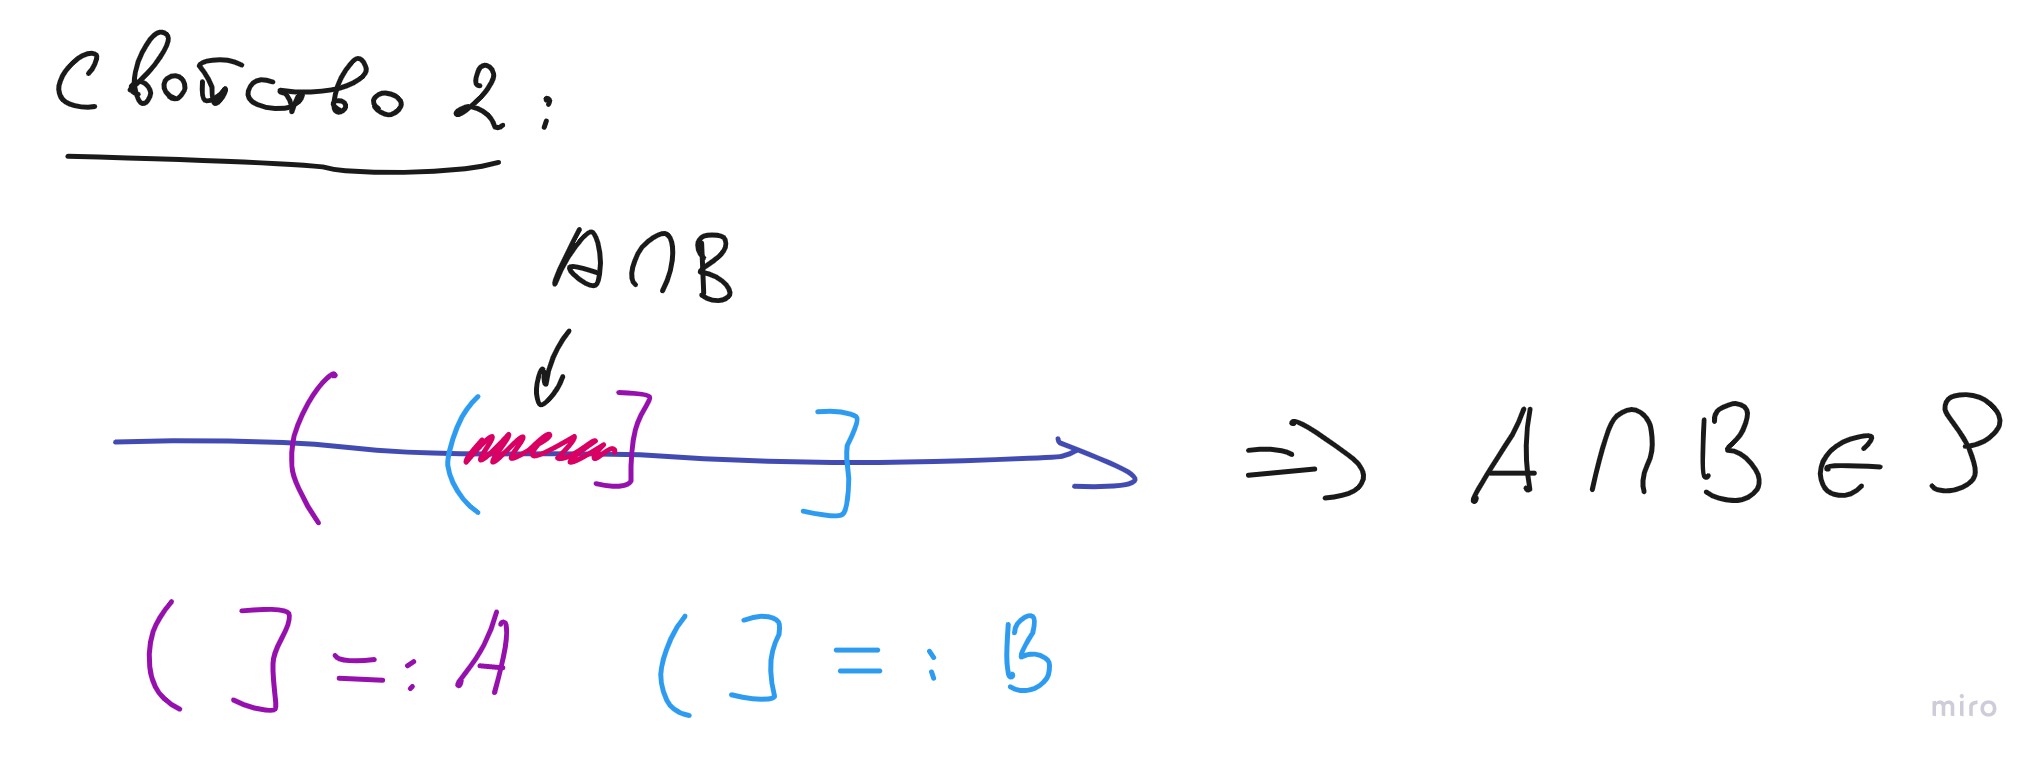 Свойство 2:
A ∩ B
( ( ] ]
⇒ A ∩ B ∈ P
( ] =: A ( ] =: B
miro